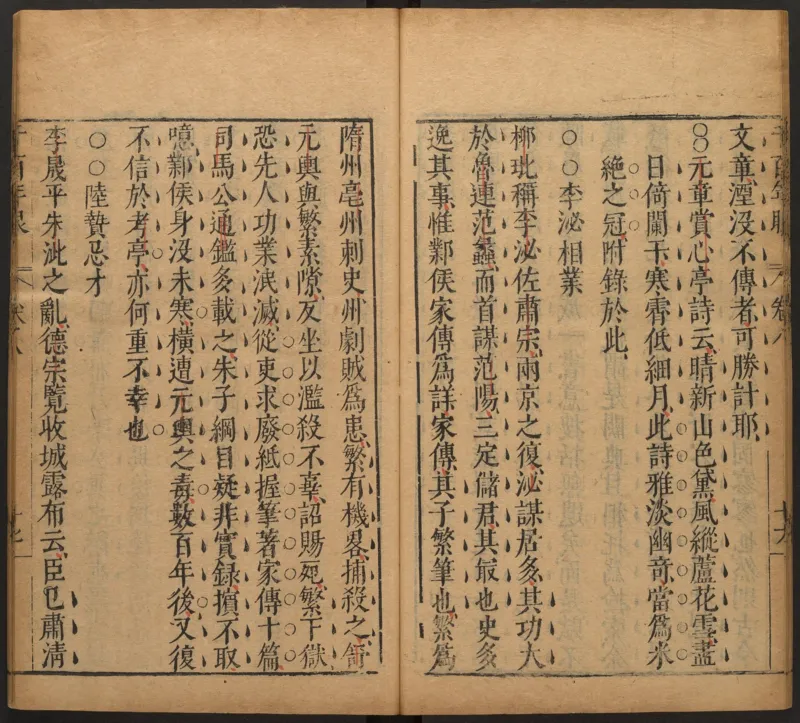 文章湮没不傳者可勝計耶
○○元章賞心亭詩云晴新山色黛風縱蘆花雪盡
日倚闌干寒霄低細月此詩雅淡幽奇當爲米
絶之冠附錄於此
○○李泌相業
柳玭稱李泌佐肅宗兩京之復泌謀居多其功大
於魯連范蠡而首謀范陽三定儲君其最也史多
逸其事惟鄴侯家傳爲詳家傳其子繁筆也繁爲
隋州亳州刺史州劇賊爲患繁有機畧捕殺之舒
元輿與繁素隙反坐以濫殺不辜詔賜死繁下獄
恐先人功業泯滅從吏求廢紙握筆著家傳十篇
司馬公通鑑多載之朱子綱目疑非實録擯不取
噫鄴侯身没未寒橫遭元輿之毒數百年後又復
不信於考亭亦何重不幸也
○○陸贄忌才
李晟平朱泚之亂德宗覽收城露布云臣已肅清